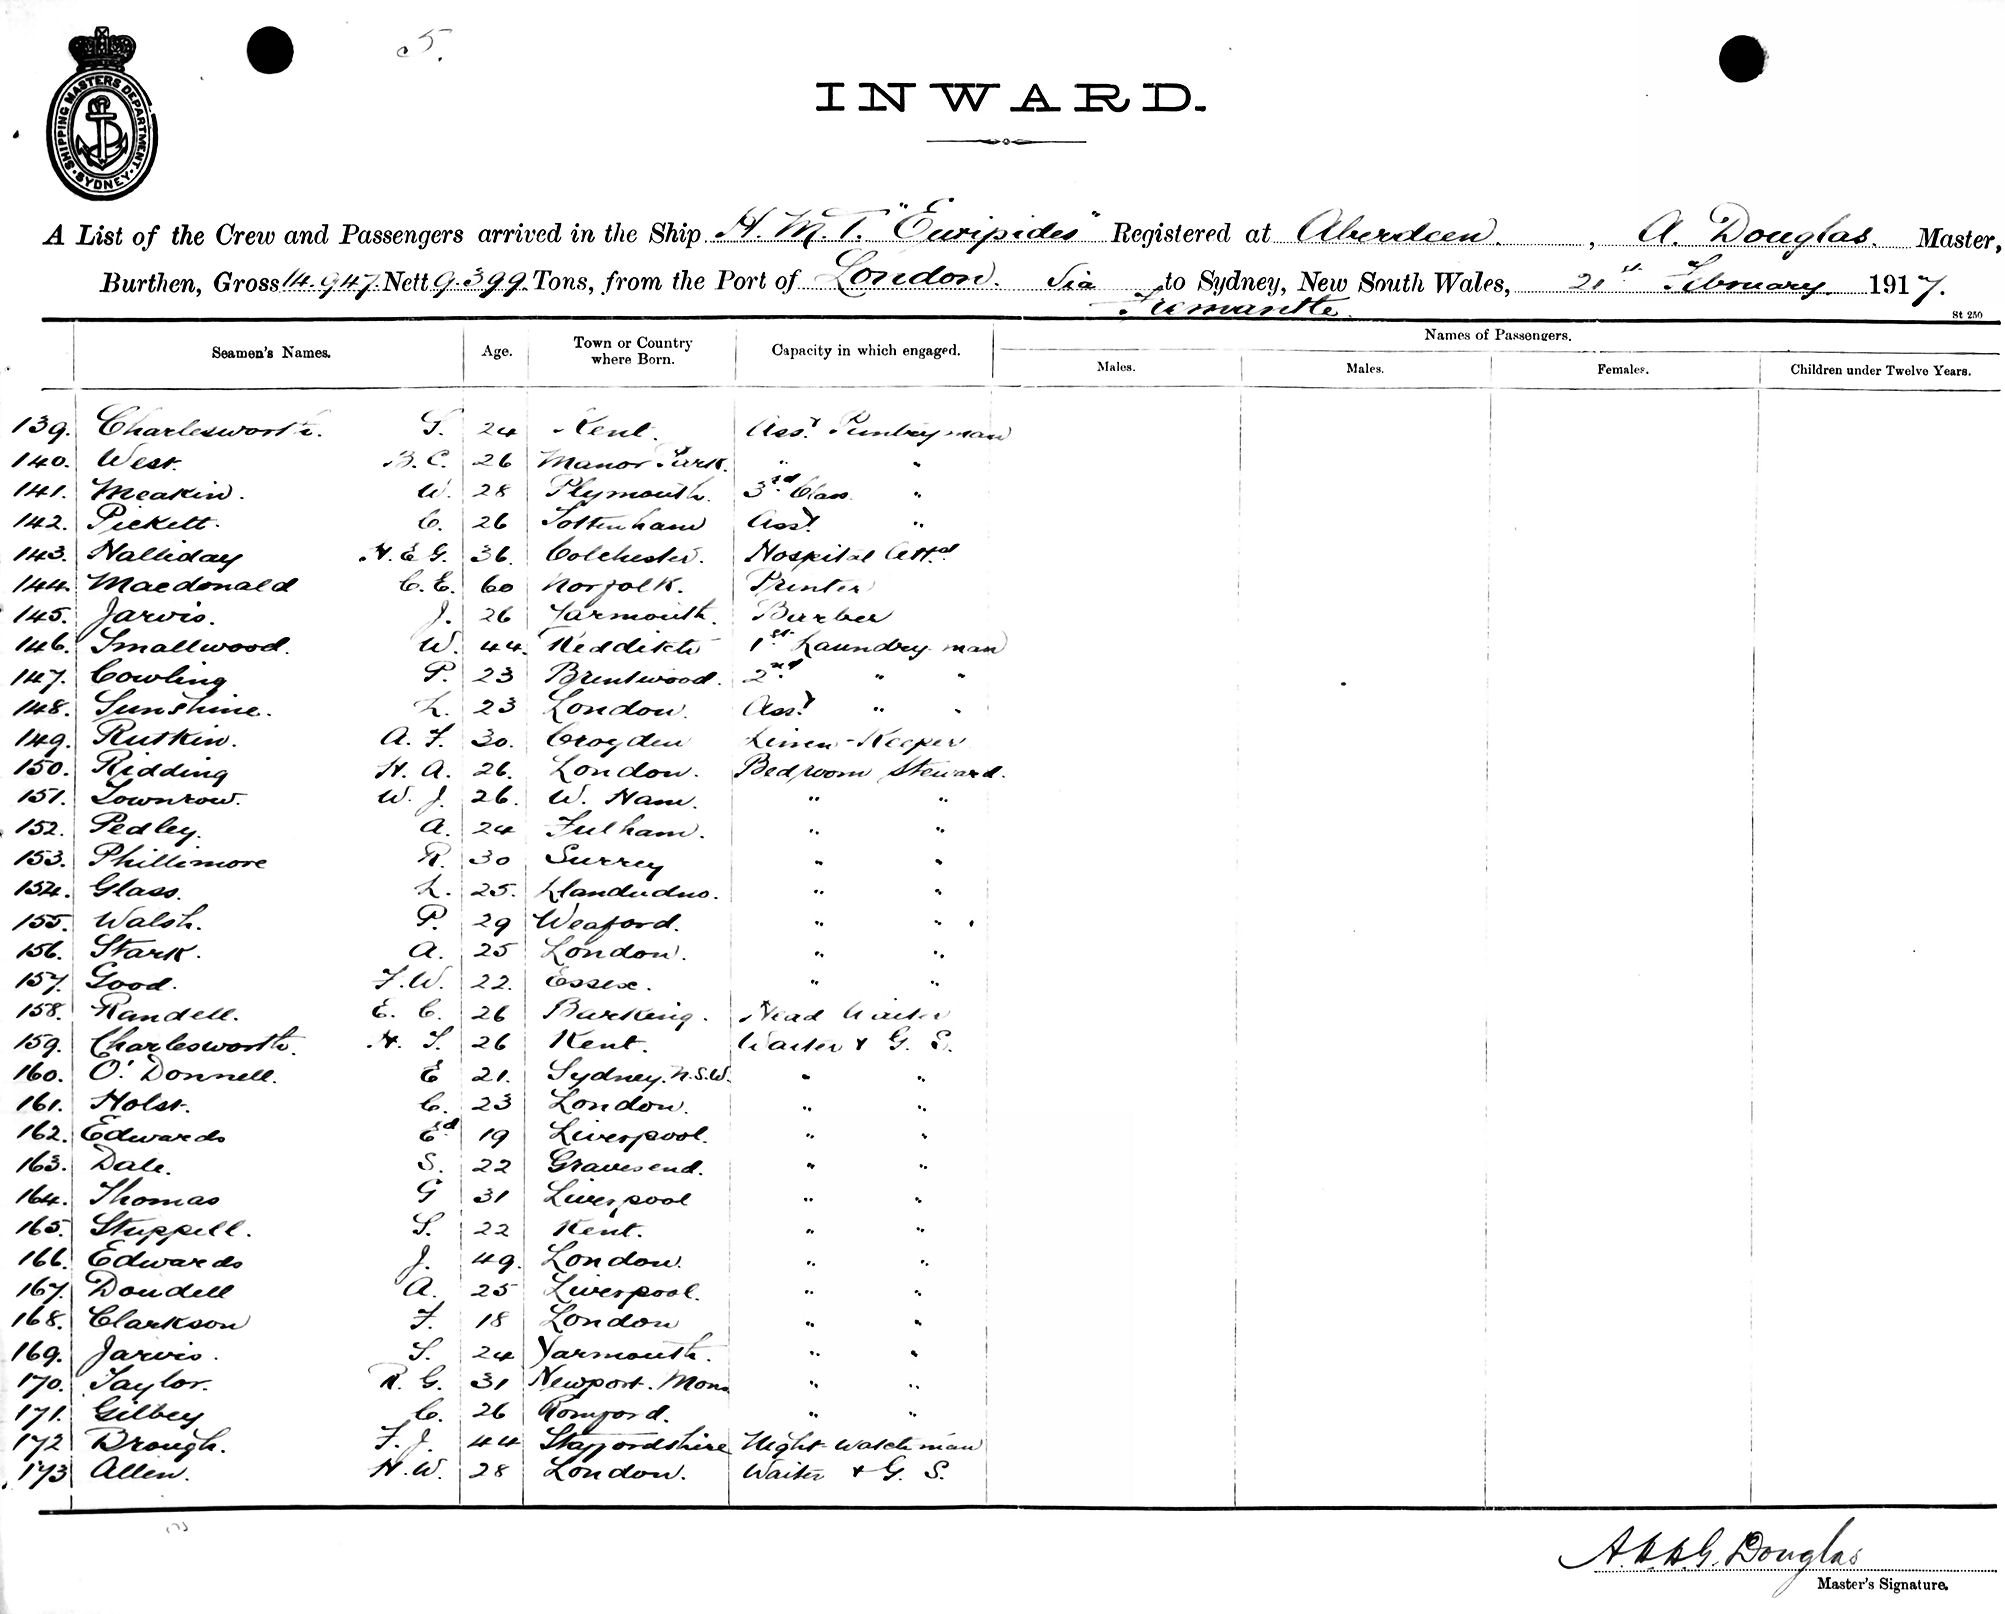 5.
SHIPPING MASTERS DEPARTMENT SYDNEY
INWARD.
A List of the Crew and Passengers arrived in the Ship H.M.T. "Euripides" Registered at Aberdeen. , A. Douglas. Master,
Burthen, Gross 14.947. Nett 9.399. Tons, from the Port of London. Via Fremantle. to Sydney, New South Wales, 21st February 1917.
St 250
Seamen's Names. Age. Town or Country where Born. Capacity in which engaged. Names of Passengers.
Males. Males. Females. Children under Twelve Years.
139. Charlesworth. S. 24 Kent. Asst. Pantryman
140. West. B. C. 26 Manor Park. " "
141. Meakin. W. 28 Plymouth. 3rd Class "
142. Pickett. C. 26 Tottenham Asst. "
143. Halliday H. E. G. 36. Colchester. Hospital Attd
144. Macdonald C. E. 60 Norfolk. Printer
145. Jarvis. J. 26 Yarmouth. Barber
146. Smallwood. W. 44. Redditch 1st Laundry man
147. Cowling P. 23 Brentwood. 2nd " "
148. Sunshine. L. 23 London. Asst. " "
149. Rutkin. A. F. 30. Croyden Linen-Keeper
150. Ridding H. A. 26. London. Bedroom Steward.
151. Townrow. W. J. 26. W. Ham. " "
152. Pedley. A. 24 Fulham. " "
153. Phillimore R. 30 Surrey " "
154. Glass. L. 25. Llandudno. " "
155. Walsh. P. 29 Weaford. " "
156. Stark. A. 25 London. " "
157. Good. F. W. 22. Essex. " "
158. Randell. E. C. 26 Barking. Head Waiter
159. Charlesworth. H. S. 26 Kent. Waiter & G. S.
160. O'Donnell. E 21. Sydney. N.S.W. " "
161. Holst. C. 23 London. " "
162. Edwards Ed 19 Liverpool. " "
163. Dale. S. 22 Gravesend. " "
164. Thomas G 31 Liverpool " "
165. Stuppell. S. 22 Kent. " "
166. Edwards J. 49. London. " "
167. Doudell A. 25 Liverpool. " "
168. Clarkson F. 18 London " "
169. Jarvis. S. 24 Yarmouth. " "
170. Taylor. R. G. 31 Newport. Mon. " "
171. Gilbey C. 26 Romford. " "
172 Brough. F. J. 44 Staffordshire Night watchman
173 Allen. H. W. 28 London. Waiter & G. S.
Douglas
Master's Signature.